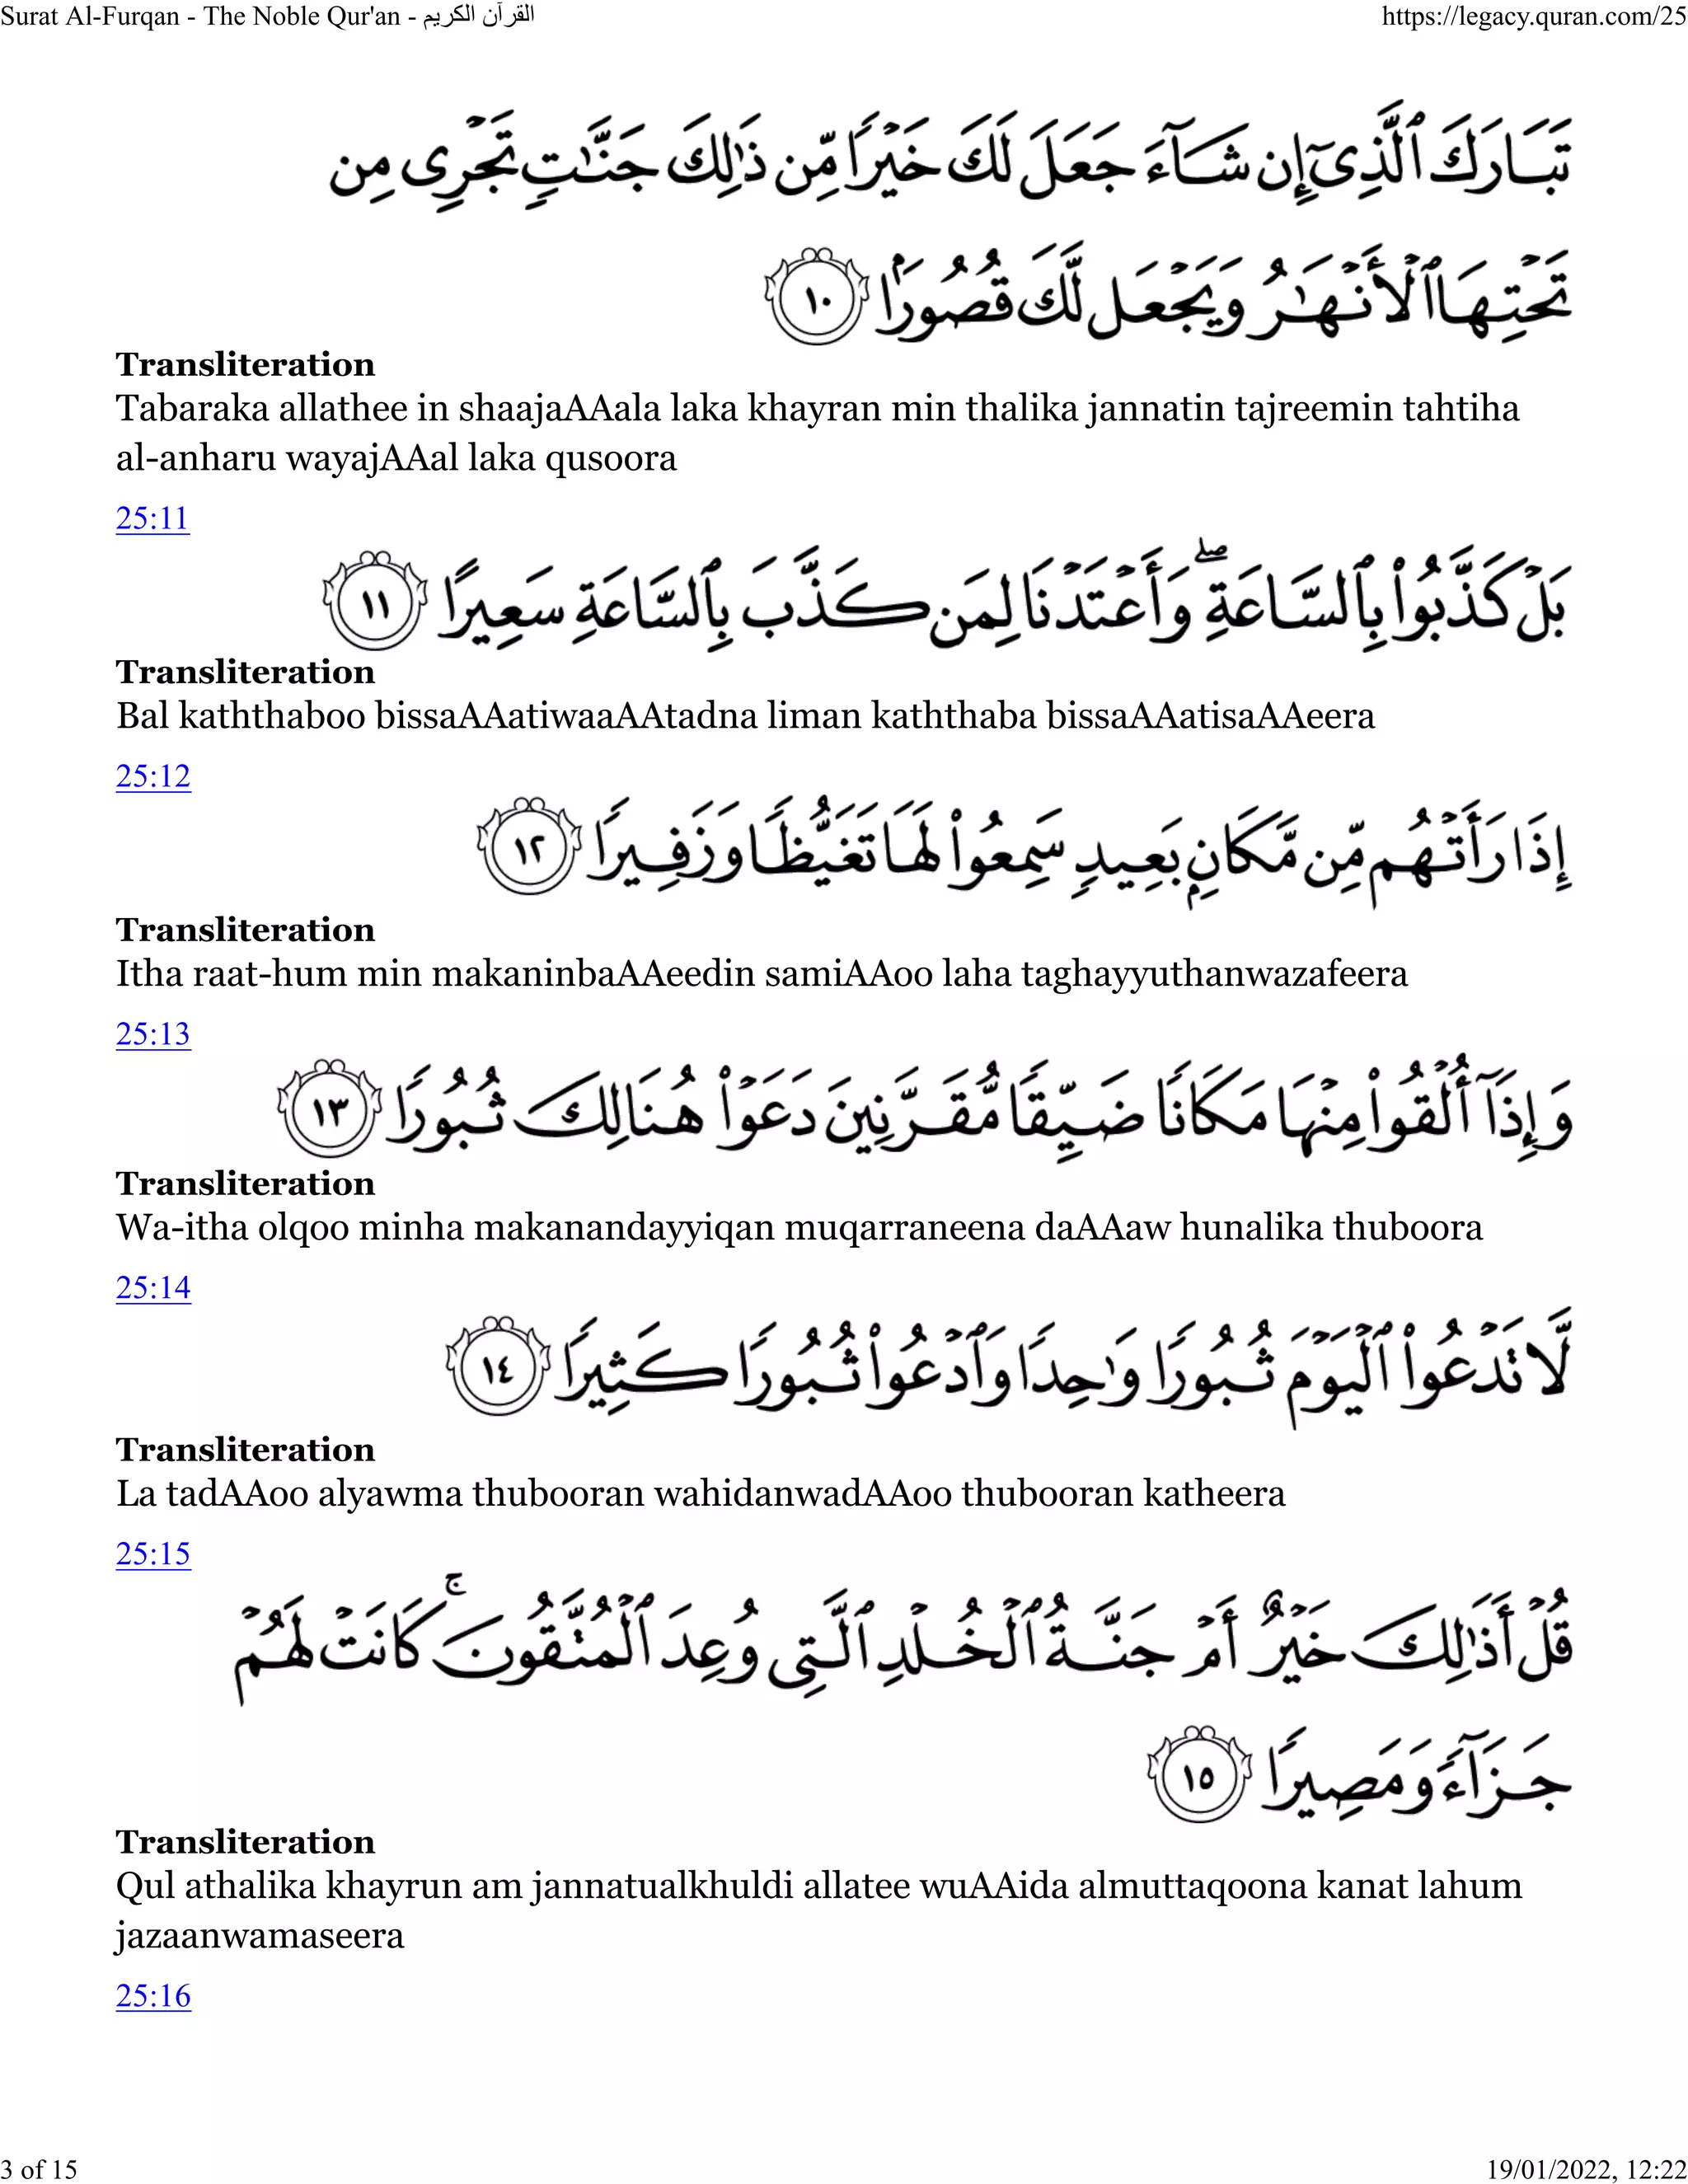 Surat Al-Furqan - The Noble Qur'an - القرآن الكريم
https://legacy.quran.com/25
تَبَارَكَ ٱلَّذِىٓ إِن شَآءَ جَعَلَ لَكَ خَيْرًا مِّن ذَٰلِكَ جَنَّـٰتٍ تَجْرِى مِن
تَحْتِهَا ٱلْأَنْهَـٰرُ وَيَجْعَل لَّكَ قُصُورًۢا ١٠
Transliteration
Tabaraka allathee in shaajaAAala laka khayran min thalika jannatin tajreemin tahtiha
al-anharu wayajAAal laka qusoora
25:11
بَلْ كَذَّبُوا۟ بِٱلسَّاعَةِ ۖ وَأَعْتَدْنَا لِمَن كَذَّبَ بِٱلسَّاعَةِ سَعِيرًا ١١
Transliteration
Bal kaththaboo bissaAAatiwaaAAtadna liman kaththaba bissaAAatisaAAeera
25:12
إِذَا رَأَتْهُم مِّن مَّكَانٍۭ بَعِيدٍ سَمِعُوا۟ لَهَا تَغَيُّظًا وَزَفِيرًا ١٢
Transliteration
Itha raat-hum min makaninbaAAeedin samiAAoo laha taghayyuthanwazafeera
25:13
وَإِذَآ أُلْقُوا۟ مِنْهَا مَكَانًا ضَيِّقًا مُّقَرَّنِينَ دَعَوْا۟ هُنَالِكَ ثُبُورًا ١٣
Transliteration
Wa-itha olqoo minha makanandayyiqan muqarraneena daAAaw hunalika thuboora
25:14
لَّا تَدْعُوا۟ ٱلْيَوْمَ ثُبُورًا وَٰحِدًا وَٱدْعُوا۟ ثُبُورًا كَثِيرًا ١٤
Transliteration
La tadAAoo alyawma thubooran wahidanwadAAoo thubooran katheera
25:15
قُلْ أَذَٰلِكَ خَيْرٌ أَمْ جَنَّةُ ٱلْخُلْدِ ٱلَّتِى وُعِدَ ٱلْمُتَّقُونَ ۚ كَانَتْ لَهُمْ
جَزَآءً وَمَصِيرًا ١٥
Transliteration
Qul athalika khayrun am jannatualkhuldi allatee wuAAida almuttaqoona kanat lahum
jazaanwamaseera
25:16
3 of 15
19/01/2022, 12:22